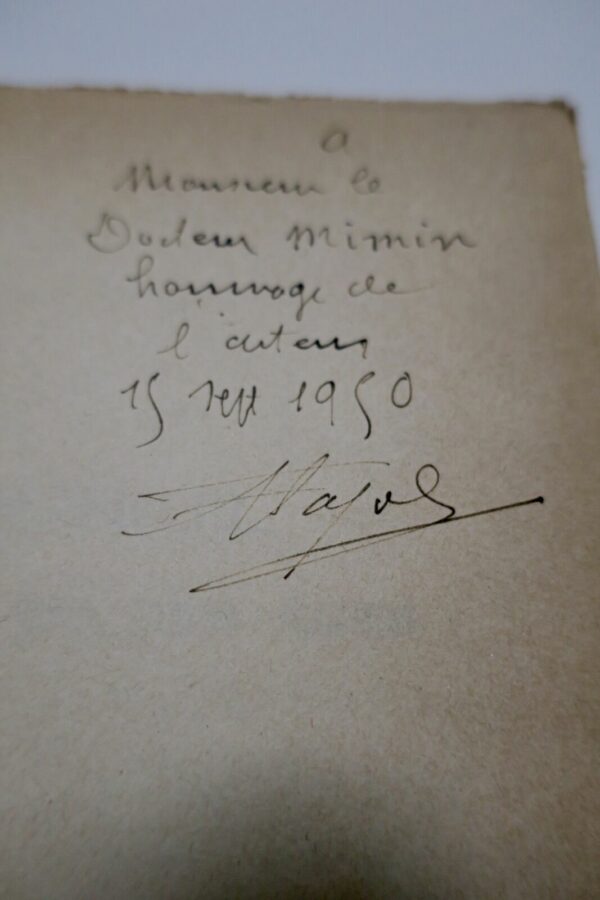 à
Monsieur le
Docteur Mimin
hommage de
l'auteur
15 sept 1950